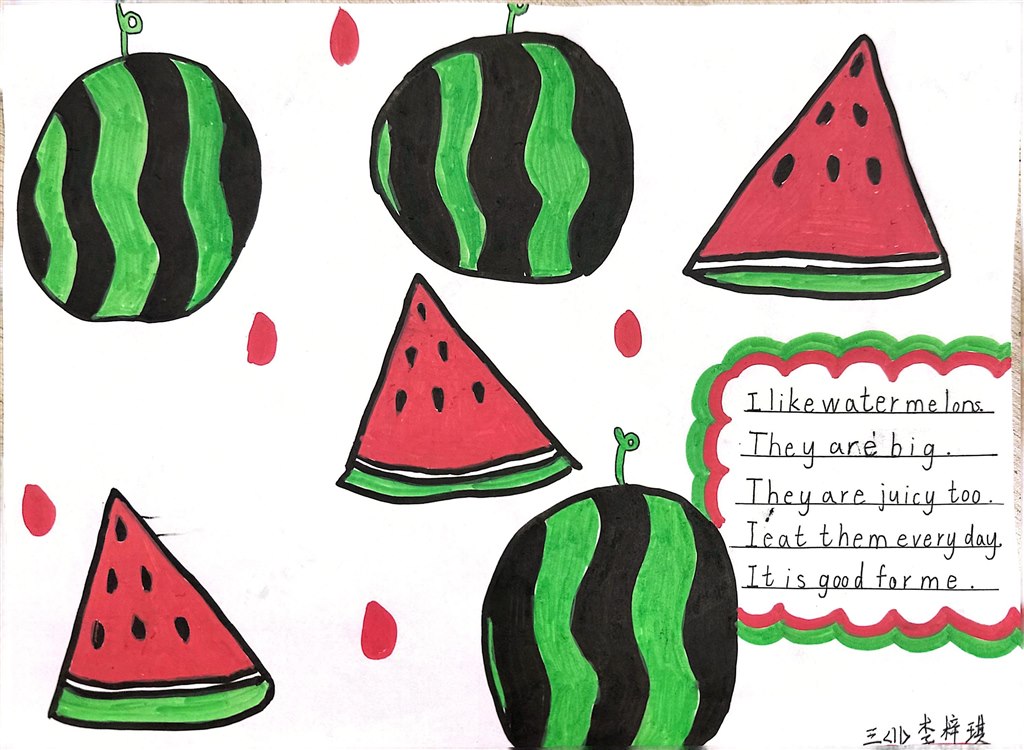 I like watermelons.
They are big.
They are juicy too.
I eat them every day.
It is good for me.
三<11>李梓琪